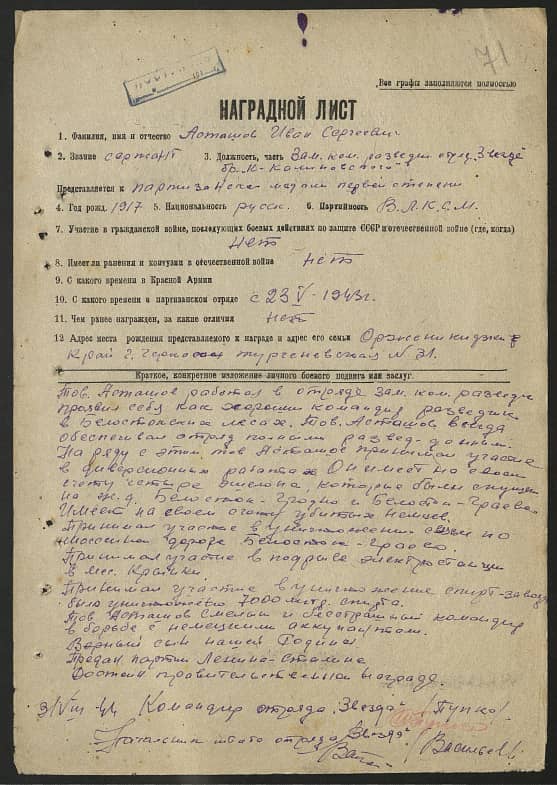 71
Все графы заполняются полностью
НАГРАДНОЙ ЛИСТ
1. Фамилия, имя и отчество Асташов Иван Сергеевич
2. Звание сержант 3. Должность, часть Зам. ком. разведки отряд „Звезда"
бр. К-Калиновского
Представляется к партизанской медали первой степени
4. Год рожд. 1917 5. Национальность русск. 6. Партийность В.Л.К.С.М.
7. Участие в гражданской войне, последующих боевых действиях по защите СССР и отечественной войне (где, когда)
нет
8. Имест ли ранения и контузии в отечественной войне нет
9. С какого времени в Красной Армии
10. С какого времени в партизанском отряде с 23 V - 1943 г.
11. Чем ранее награжден, за какие отличия нет
12 Адрес места рождения представляемого к награде и адрес его семьи Орженикидзки
Край г. тургеневская № 31.
Краткое, конкретное изложение личного боевого подвига или заслуг.
Тов. Асташов работал в отряде зам. ком. разведки
проявил себя как хороший командир разведки
в Белостокских лесах. Тов. Асташов всегда
обеспечивал отряд полными развед-данными.
На ряду с этим тов Асташов принимал участие
в диверсионных работах Он имеет на своем
счету четыре эшелона, которые были спущены
на ж.д. Белосток-Гродно и Белосток-Граево
Имеет на своем счету убитых немцев.
Принимал участие в уничтожении связи на
шоссейной дороге Белосток-Граево.
Принимал участие в подрыве электростанции
в мес. Крынки
Принимал участие в уничтожение спирт-завода
было уничтожено 7000 литр. спирта.
Тов Асташов смелый и бесстрашный командир
в борьбе с немецкими аккупантами.
Верный сын нашей Родины.
Предан партии Ленина-Сталина
Достоин правительственной награде.
3/VIII 44 Командир отряда „Звезда" /Пупко/
Начальник штаба отряда „Звезда" /Васильев/